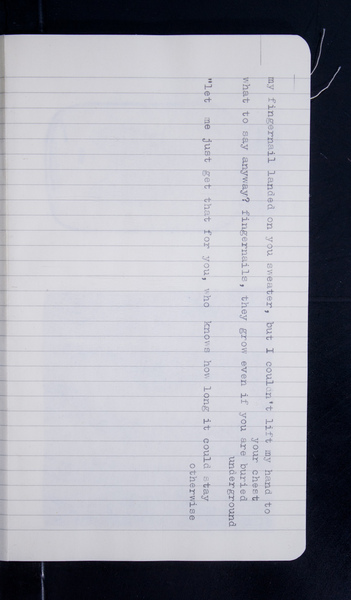 my fingernail landed on you sweater, but I couldn't lift my hand to
your chest
what to say anyway? fingernails, they grow even if you are buried
underground
"let me just get that for you, who knows how long it could stay
otherwise